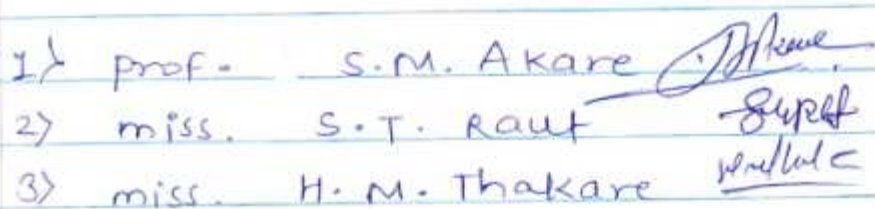 1) prof. S.M. Akare
2) miss. S.T. Raut
3) miss. H.M. Thakare